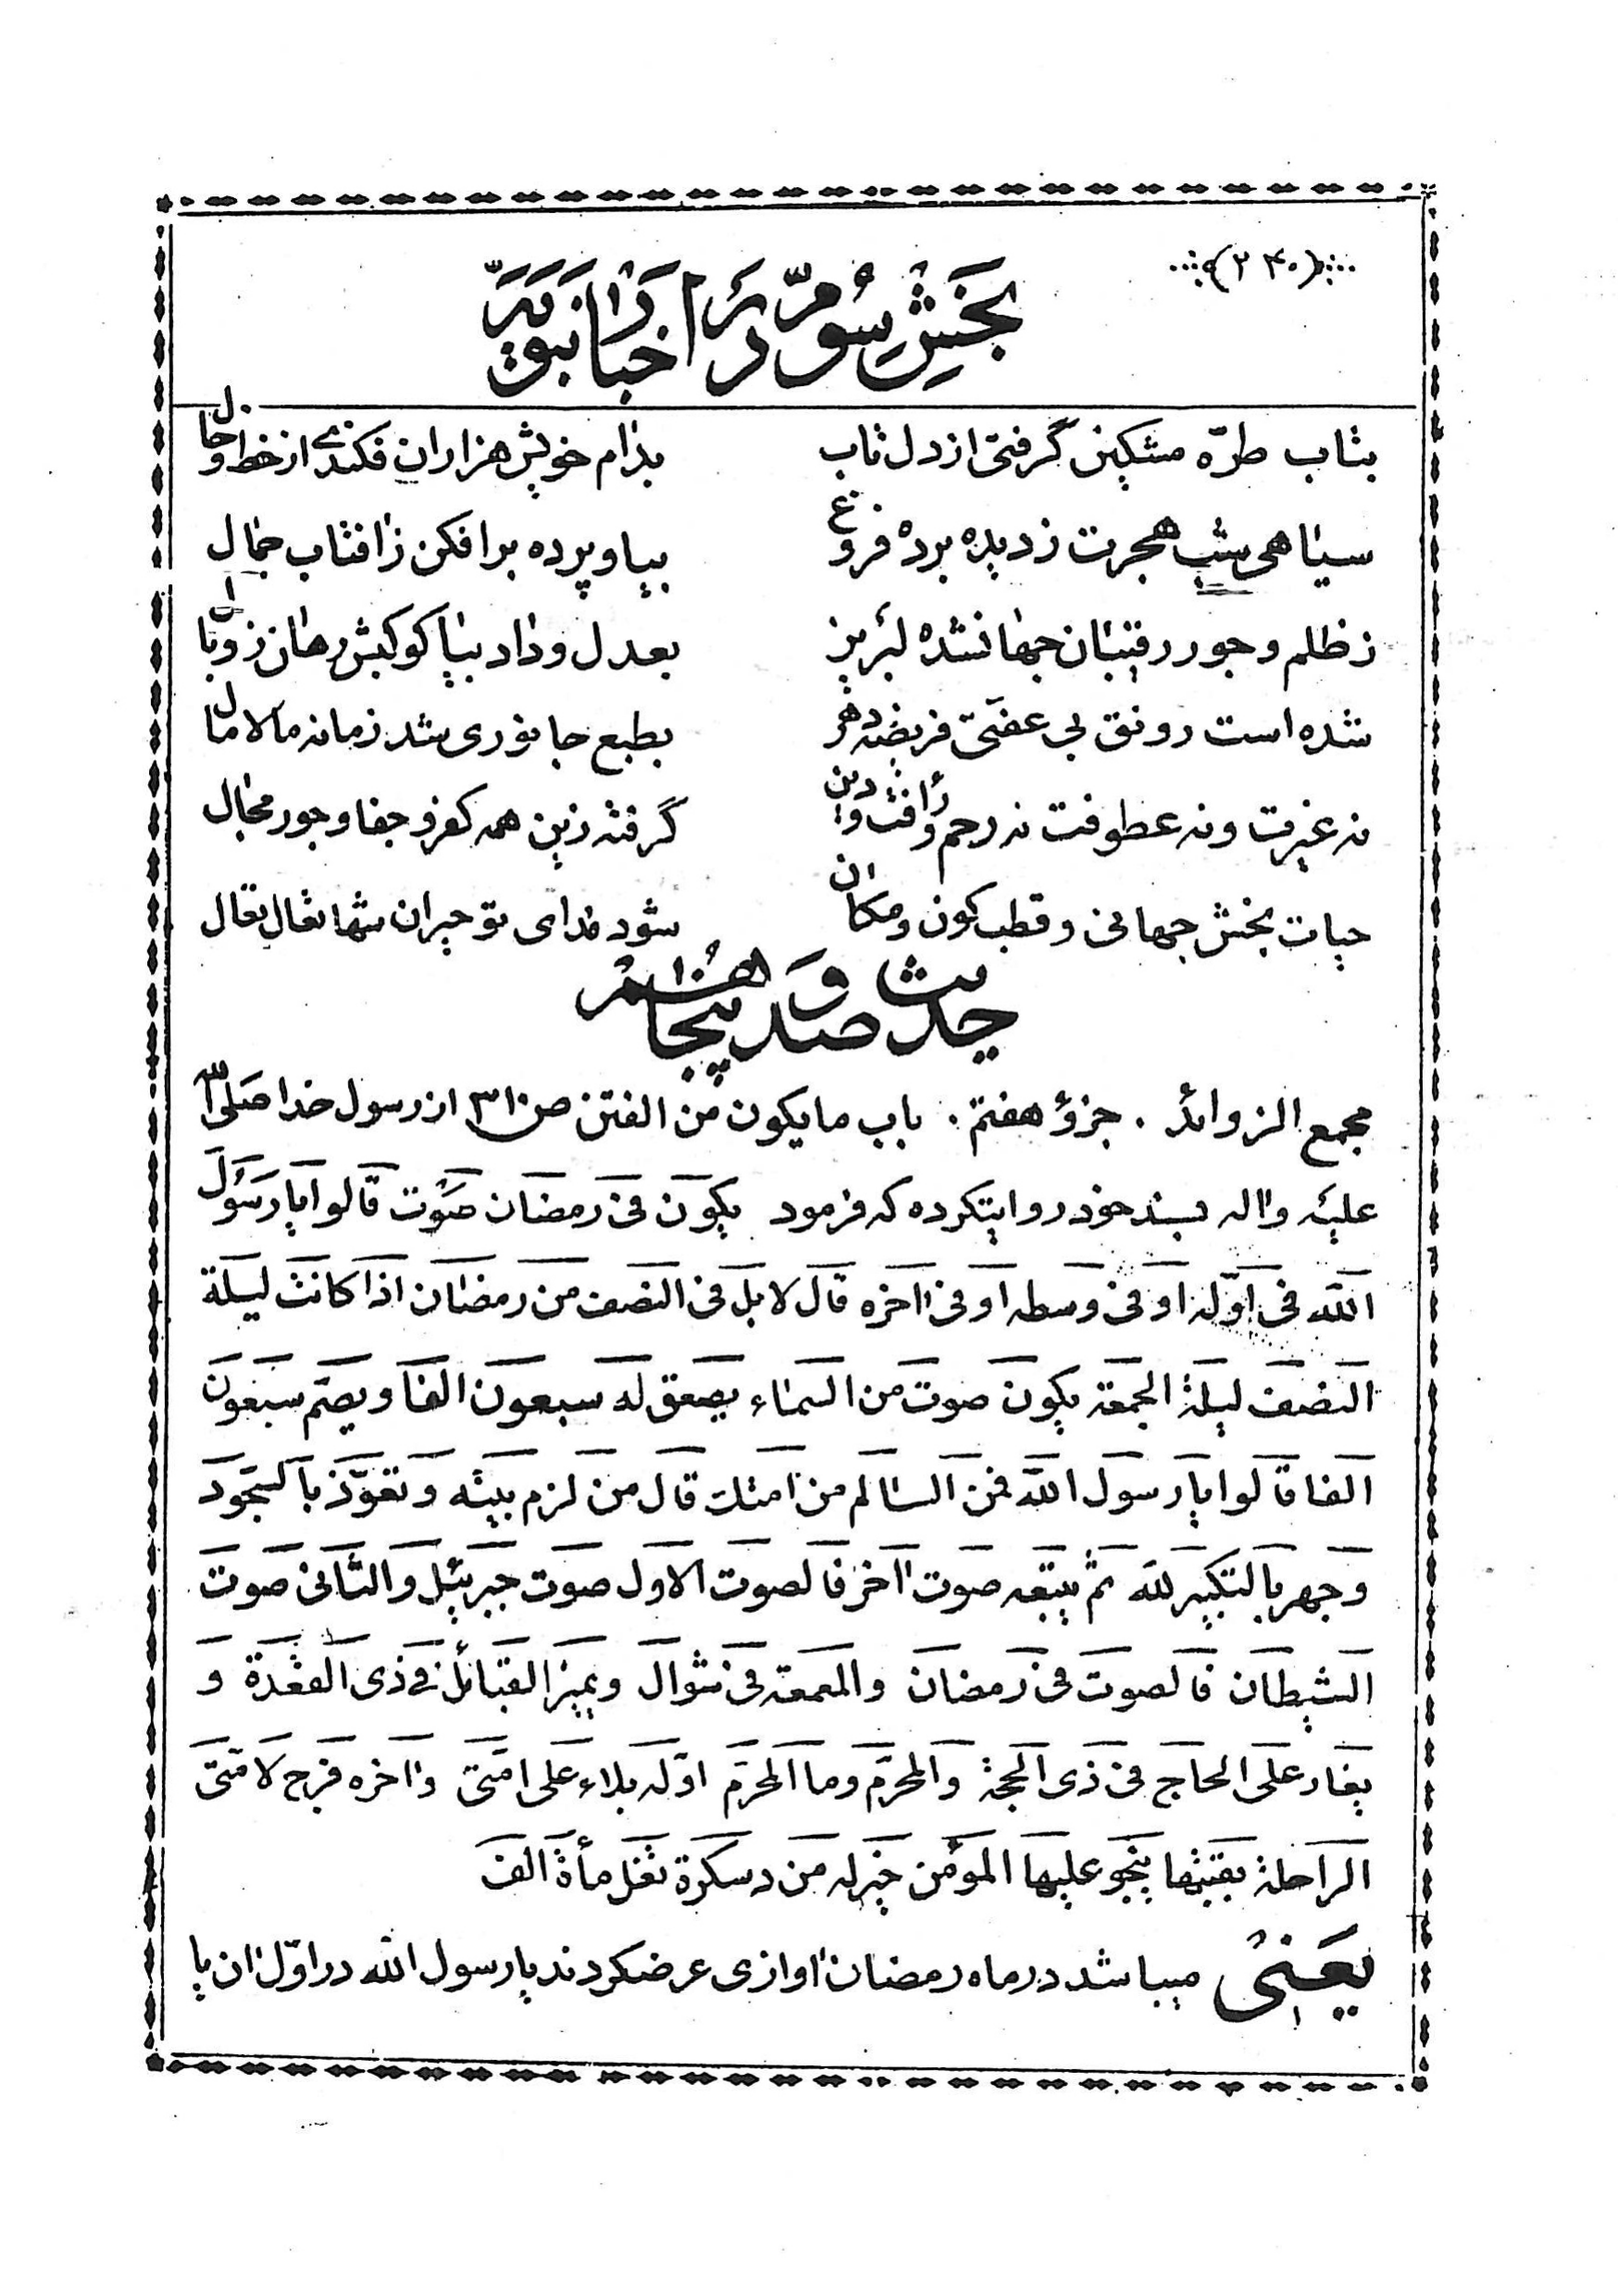 (۲۴۰)
بخش سوم در اخبار نبویه
بتاب طرّه مشکین گرفتی از دل تاب بدام خویش هزاران فکندی از خط و خال
سیاهی شب هجرت ز دیده برده فروغ بیا و پرده برافکن ز افتاب جمال
ز ظلم و جور رقیبان جهان شده لبریز بعدل و داد بیا
شده است رونق بی عفتی فریضه دهر بطبع جانوری شد زمانه مالامال
نه غیرت و نه عطوفت نه رحم و رافت و دین گرفته زین همه کفر و جفا و جور مجال
حیات بخش جهانی و قطب کون و مکان شود فدای تو حیران شها تعال تعال
حدیث صد و پنجاهشتم
مجمع الزوائد . جزؤ هفتم . باب ما یکون من الفتن ص ۳۱۰ از رسول خدا صلی الله
علیه و اله بسند خود روایتکرده که فرمود یکون فی رمضان صوت قالوا یا رسول
الله فی اوّله او فی وسطه او فی اخره قال لا بل فی النصف من رمضان اذا کانت لیلة
النصف لیلة الجمعة یکون صوت من السماء یصعق له سبعون الفا و یصم سبعون
الفا قالوا یا رسول الله فمن السالم من امتک قال من لزم بیته و تعوّذ بالسجود
و جهر بالتکبیر لله ثم یتبعه صوت اخر فالصوت الاول صوت جبرئیل و الثانی صوت
الشیطان فالصوت فی رمضان والمعمعة فی شوال و یمیز القبائل فی ذی القعدة و
یغار علی الحاج فی ذی الحجة والمحرّم وما المحرّم اوّله بلاء علی امتی و اخره فرج لامتی
الراحلة بقتبها ینجو علیها المؤمن خیر له من دسکرة تغل مأة الف
یعنی میباشد در ماه رمضان اوازی عرضکردند یا رسول الله در اوّل ان یا